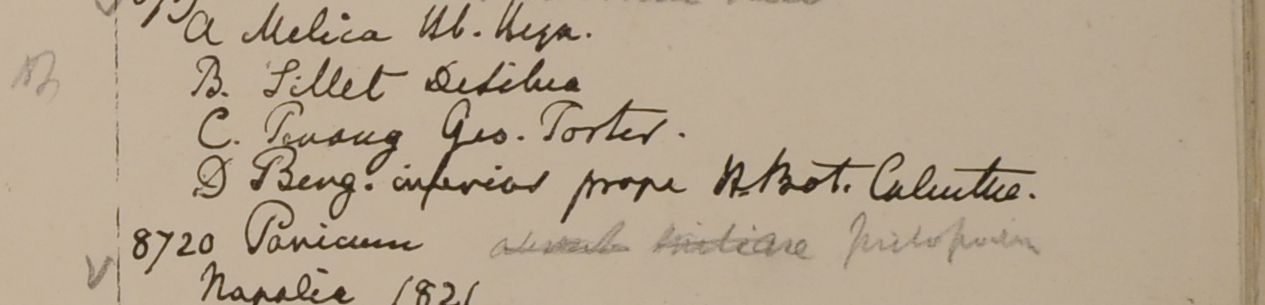 a Melica Hb. Heyn.
B. Sillet Desilva
C. Penang Geo. Porter.
D Beng. inferior prope H. Bot. Calcuttae.
8720 Panicum miliare psilopodium
Napalia 1821